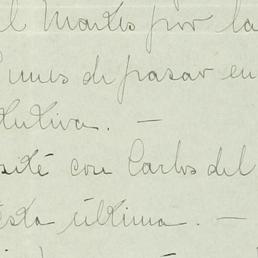 el Martes por la
unes de pasar en
tutiva. —
sité con Carlos del
ésta última. —